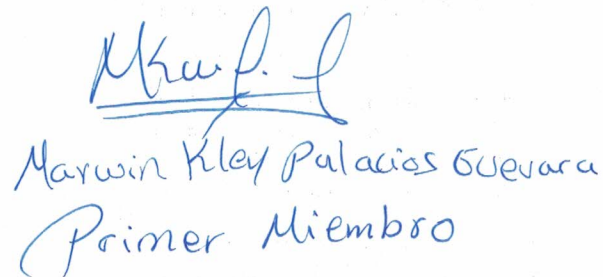 Marwin Kley Palacios Guevara
Primer Miembro